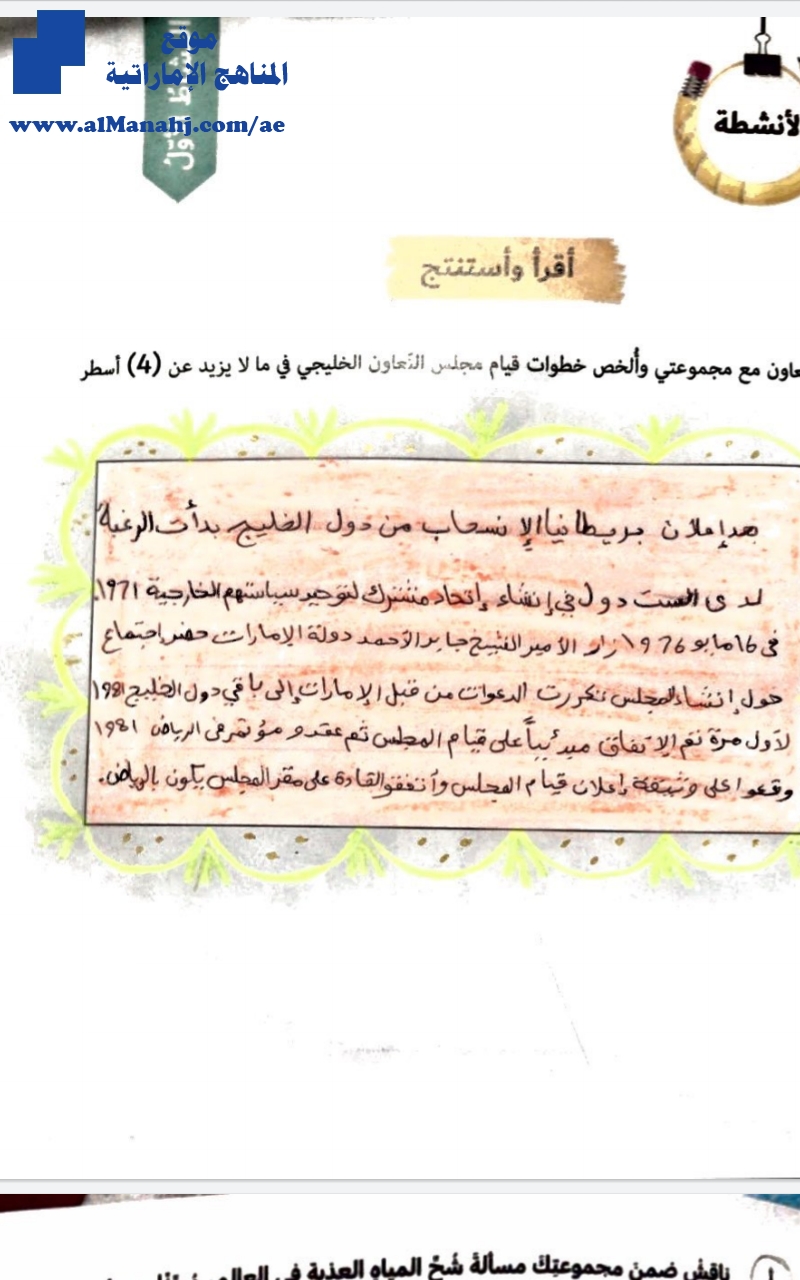 موقع
المناهج الإماراتية
www.alManahj.com/ae
الأنشطة
أقرأ وأستنتج
مع مجموعتي وأُلخص خطوات قيام مجلس التّعاون الخليجي في ما لا يزيد عن (4) أسطر
بريطانيا الإنسحاب من دول الخليج بدأت الرغبة
لدى الست دول في إنشاء إتحاد مشترك لتوحيد سياستهم الخارجية 1971.
في 16 مايو 1976 زار الأمير الشيخ جابر الأحمد دولة الإمارات حضر إجتماع
حول إنشاء المجلس تكررت الدعوات من قبل الإمارات إلى باقي دول الخليج 1981
لأول مرة تم الإتفاق مبدئياً على قيام المجلس ثم عقدو مؤتمر في الرياض 1981
وقعوا على وثيقة إعلان قيام المجلس وأتفقو القادة على مقر المجلس يكون بالرياض.
ناقش ضمن مجموعتِك مسألةَ شُحّ المياهِ العذبةِ في العالم